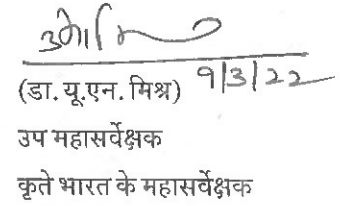 (डा. यू.एन. मिश्र) 9/3/22
उप महासर्वेक्षक
कृते भारत के महासर्वेक्षक